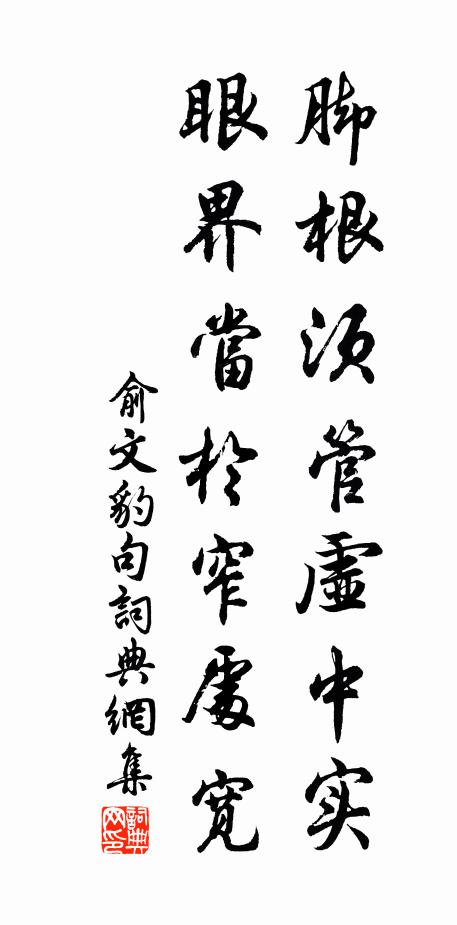 脚根须管虚中实
眼界當於窄處寬
俞文豹句詞典網集
詞典網印